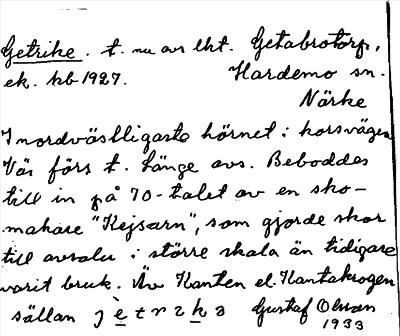 Getrike. t. nu av lht. Getabrotorp,
ek. kb 1927. Hardemo sn.
Närke
I nordvästligaste hörnet i korsvägen
Var förs t. länge avs. Beboddes
till in på 70-talet av en sko-
makare "Kejsarn", som gjorde skor
till avsalu i större skala än tidigare
varit bruk. Äv Kanten el. Kantakrogen
sällan Gustaf Olsson
1933